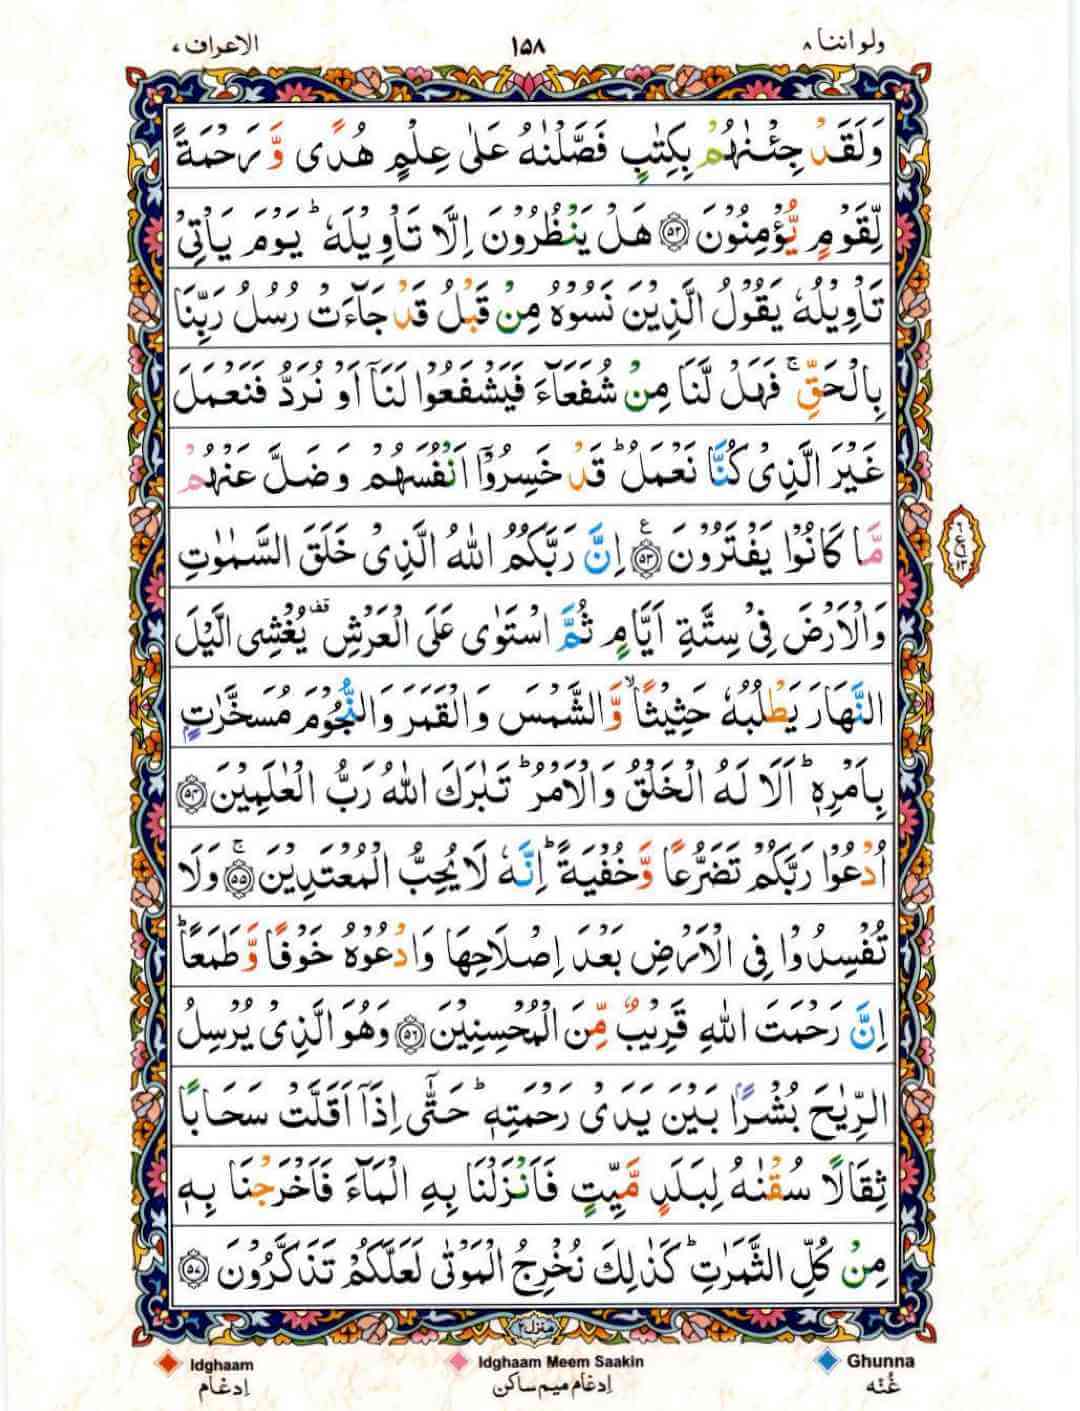 ولو اننا ۸
۱۵۸
الاعراف ۷
وَلَقَدْ جِئْنٰهُمْ بِكِتٰبٍ فَصَّلْنٰهُ عَلٰى عِلْمٍ هُدًى وَّ رَحْمَةً
لِّقَوْمٍ يُّؤْمِنُوْنَ ﴿۵۲﴾ هَلْ يَنْظُرُوْنَ اِلَّا تَاْوِيْلَهٗ ؕ يَوْمَ يَاْتِيْ
تَاْوِيْلُهٗ يَقُوْلُ الَّذِيْنَ نَسُوْهُ مِنْ قَبْلُ قَدْ جَآءَتْ رُسُلُ رَبِّنَا
بِالْحَقِّ ۚ فَهَلْ لَّنَا مِنْ شُفَعَآءَ فَيَشْفَعُوْا لَنَاۤ اَوْ نُرَدُّ فَنَعْمَلَ
غَيْرَ الَّذِيْ كُنَّا نَعْمَلُ ؕ قَدْ خَسِرُوْۤا اَنْفُسَهُمْ وَ ضَلَّ عَنْهُمْ
مَّا كَانُوْا يَفْتَرُوْنَ ﴿۵۳﴾ ع اِنَّ رَبَّكُمُ اللهُ الَّذِيْ خَلَقَ السَّمٰوٰتِ
وَالْاَرْضَ فِيْ سِتَّةِ اَيَّامٍ ثُمَّ اسْتَوٰى عَلَى الْعَرْشِ قف يُغْشِى الَّيْلَ
النَّهَارَ يَطْلُبُهٗ حَثِيْثًا ۙ وَّالشَّمْسَ وَالْقَمَرَ وَالنُّجُوْمَ مُسَخَّرٰتٍۭ
بِاَمْرِهٖ ؕ اَلَا لَهُ الْخَلْقُ وَالْاَمْرُ ؕ تَبٰرَكَ اللهُ رَبُّ الْعٰلَمِيْنَ ﴿۵۴﴾
اُدْعُوْا رَبَّكُمْ تَضَرُّعًا وَّخُفْيَةً ؕ اِنَّهٗ لَا يُحِبُّ الْمُعْتَدِيْنَ ﴿۵۵﴾ ۚ وَلَا
تُفْسِدُوْا فِى الْاَرْضِ بَعْدَ اِصْلَاحِهَا وَادْعُوْهُ خَوْفًا وَّطَمَعًا ؕ
اِنَّ رَحْمَتَ اللهِ قَرِيْبٌ مِّنَ الْمُحْسِنِيْنَ ﴿۵۶﴾ وَهُوَ الَّذِيْ يُرْسِلُ
الرِّيٰحَ بُشْرًۢا بَيْنَ يَدَيْ رَحْمَتِهٖ ؕ حَتّٰۤى اِذَاۤ اَقَلَّتْ سَحَابًا
ثِقَالًا سُقْنٰهُ لِبَلَدٍ مَّيِّتٍ فَاَنْزَلْنَا بِهِ الْمَآءَ فَاَخْرَجْنَا بِهٖ
مِنْ كُلِّ الثَّمَرٰتِ ؕ كَذٰلِكَ نُخْرِجُ الْمَوْتٰى لَعَلَّكُمْ تَذَكَّرُوْنَ ﴿۵۷﴾
منزل ۲
Idghaam
Idghaam Meem Saakin
Ghunna
اِدغام
اِدغام میم ساکن
غُنّه